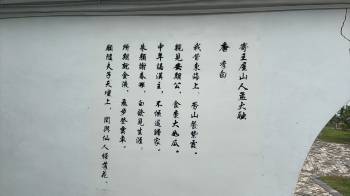 寄王屋山人孟大融
唐 李白
我昔东海上，劳山餐紫霞。
親見安期公，食棗大如瓜。
中年謁漢主，不愜還歸家。
朱顏謝春暉，白發見生涯。
所期就金液，飛步登雲車。
願隨夫子天壇上，閑與仙人掃落花。